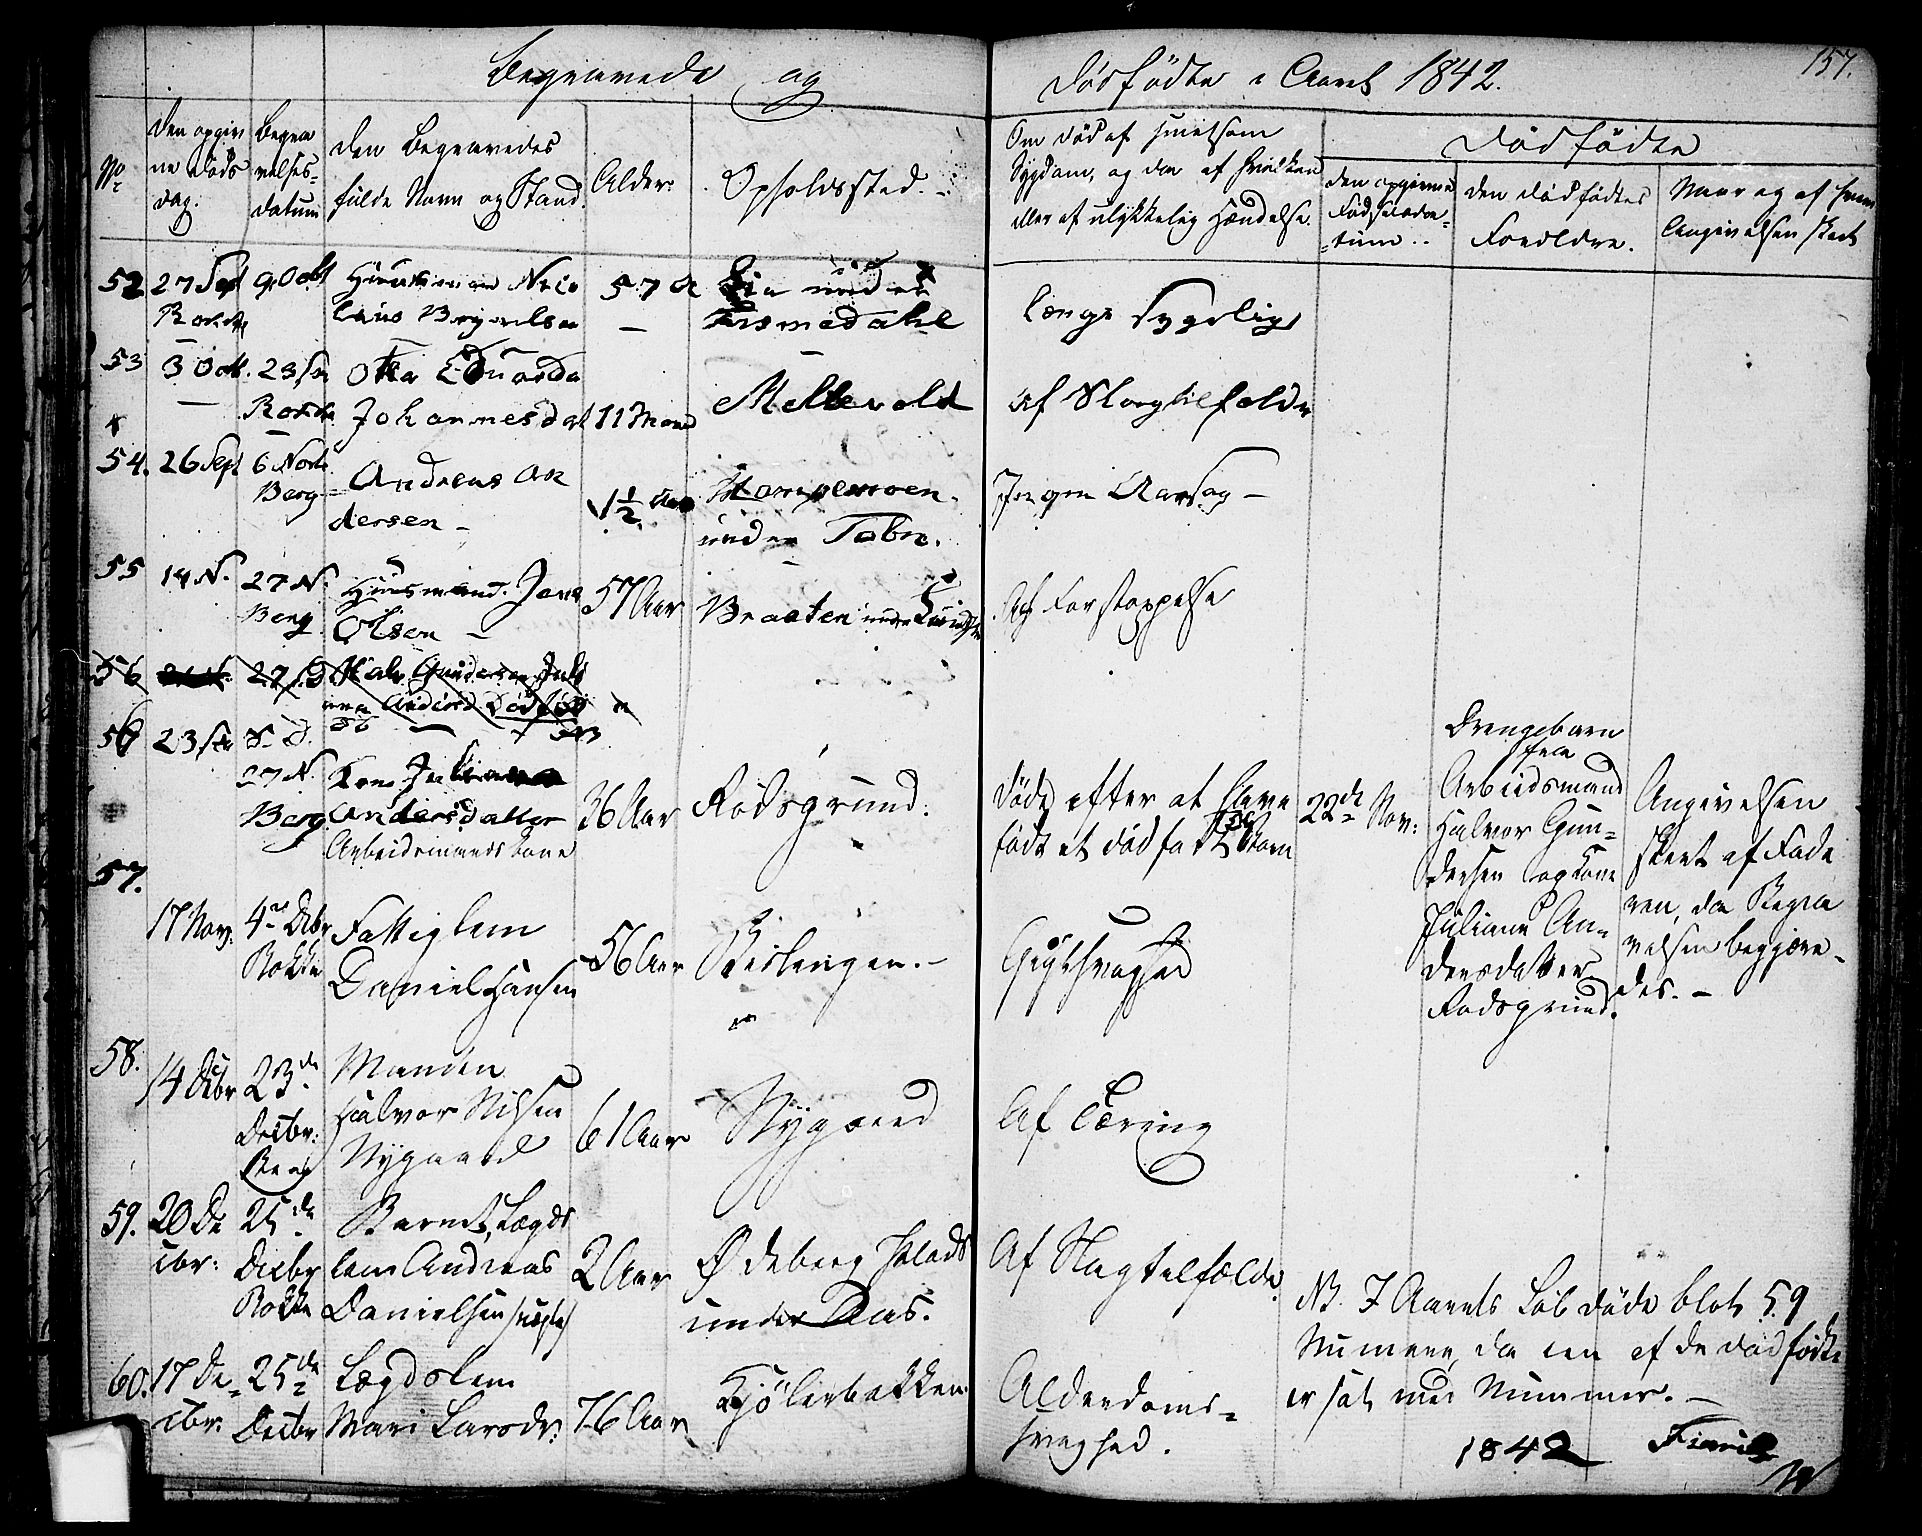 157.
Begravede og Dødfødte i Aaret 1842.
No
Den opgiv
ne Døds
dag.
Begra
velses-
datum
Den Begravedes
fulde Navn og Stand.
Alder.
Opholdssted.
Om død af smitsom
Sygdom, og da af hvilken
eller af ulykkelig Hændelse.
Dødfødte
Den opgivne
Fødselsda-
tum.
Den Dødfødtes
Forældre.
Naar og af hvem
Angivelsen skeet
52 27 Sept 9 Octbr Huusmand
Rokke
Brynelsen
57 A
under
Længe Sygelig
53 3 Oct. 23
Rokke
Johannesdat 11 Maan
Mellevold
54. 26 Sept 6 Novbr
Berg
Andreas An
dersen -
1½ Aar
under
Ingen Aarsag -
55 14 N. 27 N.
Berg
Huusmand Jens
Olsen -
57 Aar
Braaten under
Af Forstoppelse
56 27
Halv Gundersen
Dødfød
56 23
27 N.
Berg
Kone Juliane
Andersdatter
Arbeidsmands Kone
36 Aar
Rødsgrund.
Døde efter at have
født et dødfødt Barn
22de Nov:
Drengebarn
fra
Arbeidsmand
Halvor Gun-
dersen og Kone
Juliane An-
dersdatter
Rødsgrund.
Angivelsen
skeet af Fade
ren, da Begra
velsen begjære-
des. -
57.
17 Nov: 4de Dcbr
Rokke
Fattiglem
Daniel Hansen
56 Aar
Gigtsvaghed
58.
14 Dcbr 23de
Decbr:
Berg
Manden
Halvor Nilsen
Nygaard
61 Aar
Nygaard
Af Tæring
59. 20 De
cbr:
25de
Decbr
Rokke
Barnet, Lægds
lem Andreas
Danielsen
2 Aar
Ødeberg Plads
under Aas.
Af Slagtilfælde
60. 17 De-
cbr.
25de
Decbr
Lægdslem
Mari Larsdr:
76 Aar
Kjølerbakken
Alderdoms-
svaghed.
NB. I Aarets Løb døde blot 59
Numere, da een af de dødfødte
er sat med Nummer. -
1842